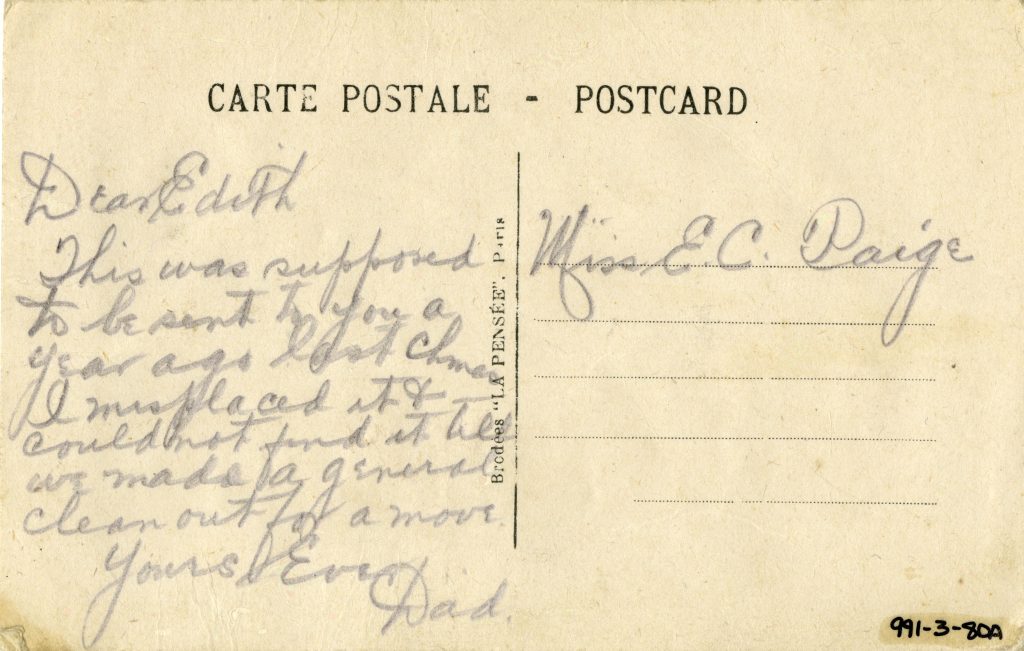 CARTE POSTALE - POSTCARD
Dear Edith
This was supposed
to be sent to you a
year ago last Chmas
I misplaced it &
could not find it till
we made a general
clean out for a move.
Yours Ever
Dad.
Brodées "LA PENSÉE", Paris
Miss. E. C. Paige
991-3-80A